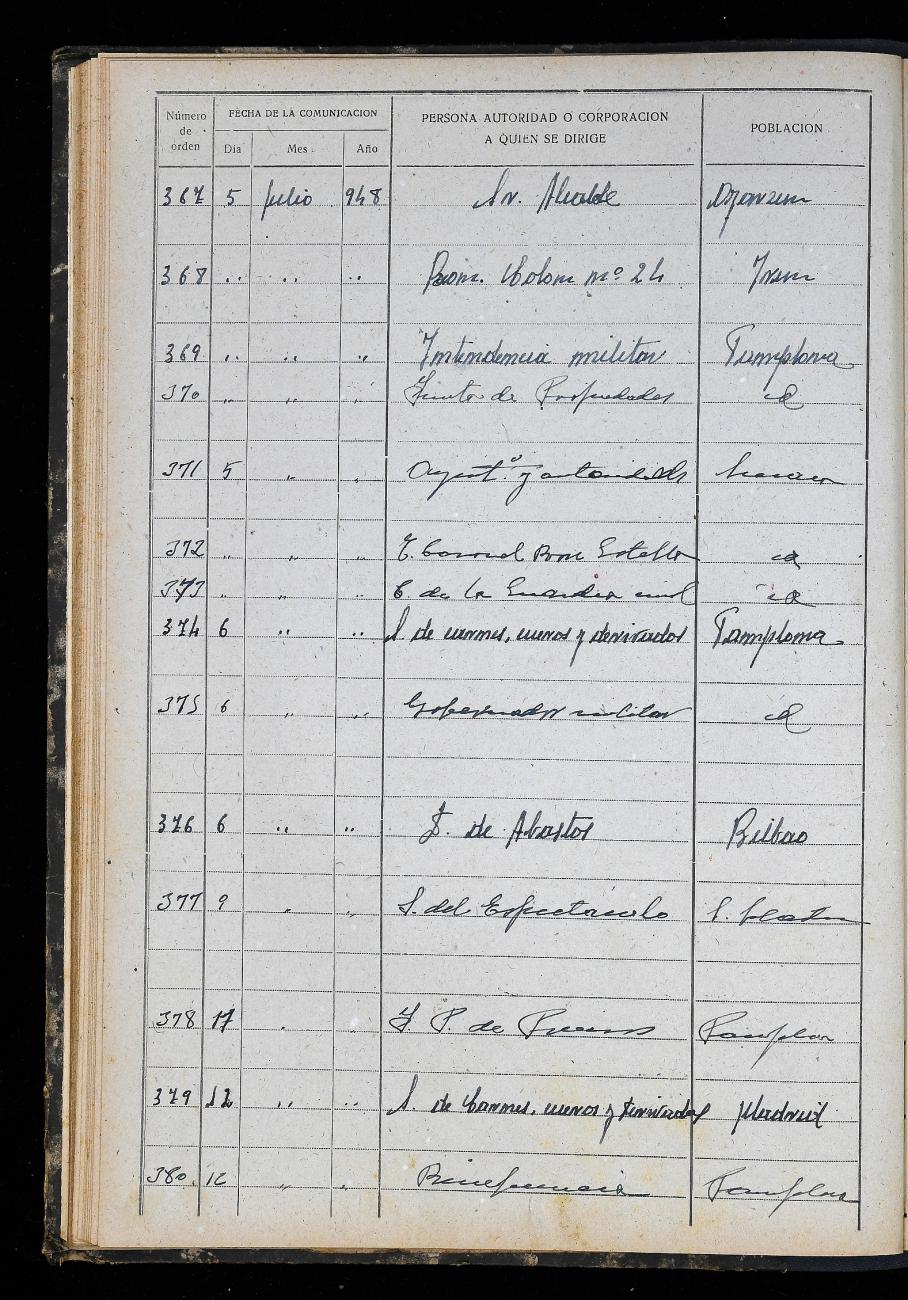 Número de orden FECHA DE LA COMUNICACION PERSONA AUTORIDAD O CORPORACION A QUIEN SE DIRIGE POBLACION
Dia Mes Año
367 5 Julio 948 Sr. Alcalde
368 " " " Bom. Colom nº 24 Irun
369 " " " Intendencia militar Pamplona
370 " " " de Propiedades id
371 5 " " Ayuntº. y
372 " " " T. Coronel Estella id
373 " " " C. de la Guardia civil id
374 6 " " S. de carnes, cueros y derivados Pamplona
375 6 " " Gobernador militar id
376 6 " " de Abastos Bilbao
377 9 " " S. del Espectaculo
378 " " P. de Pamplona
379 12 " " S. de Carnes, cueros y derivados Madrid
380 12 " " Beneficencia Pamplona